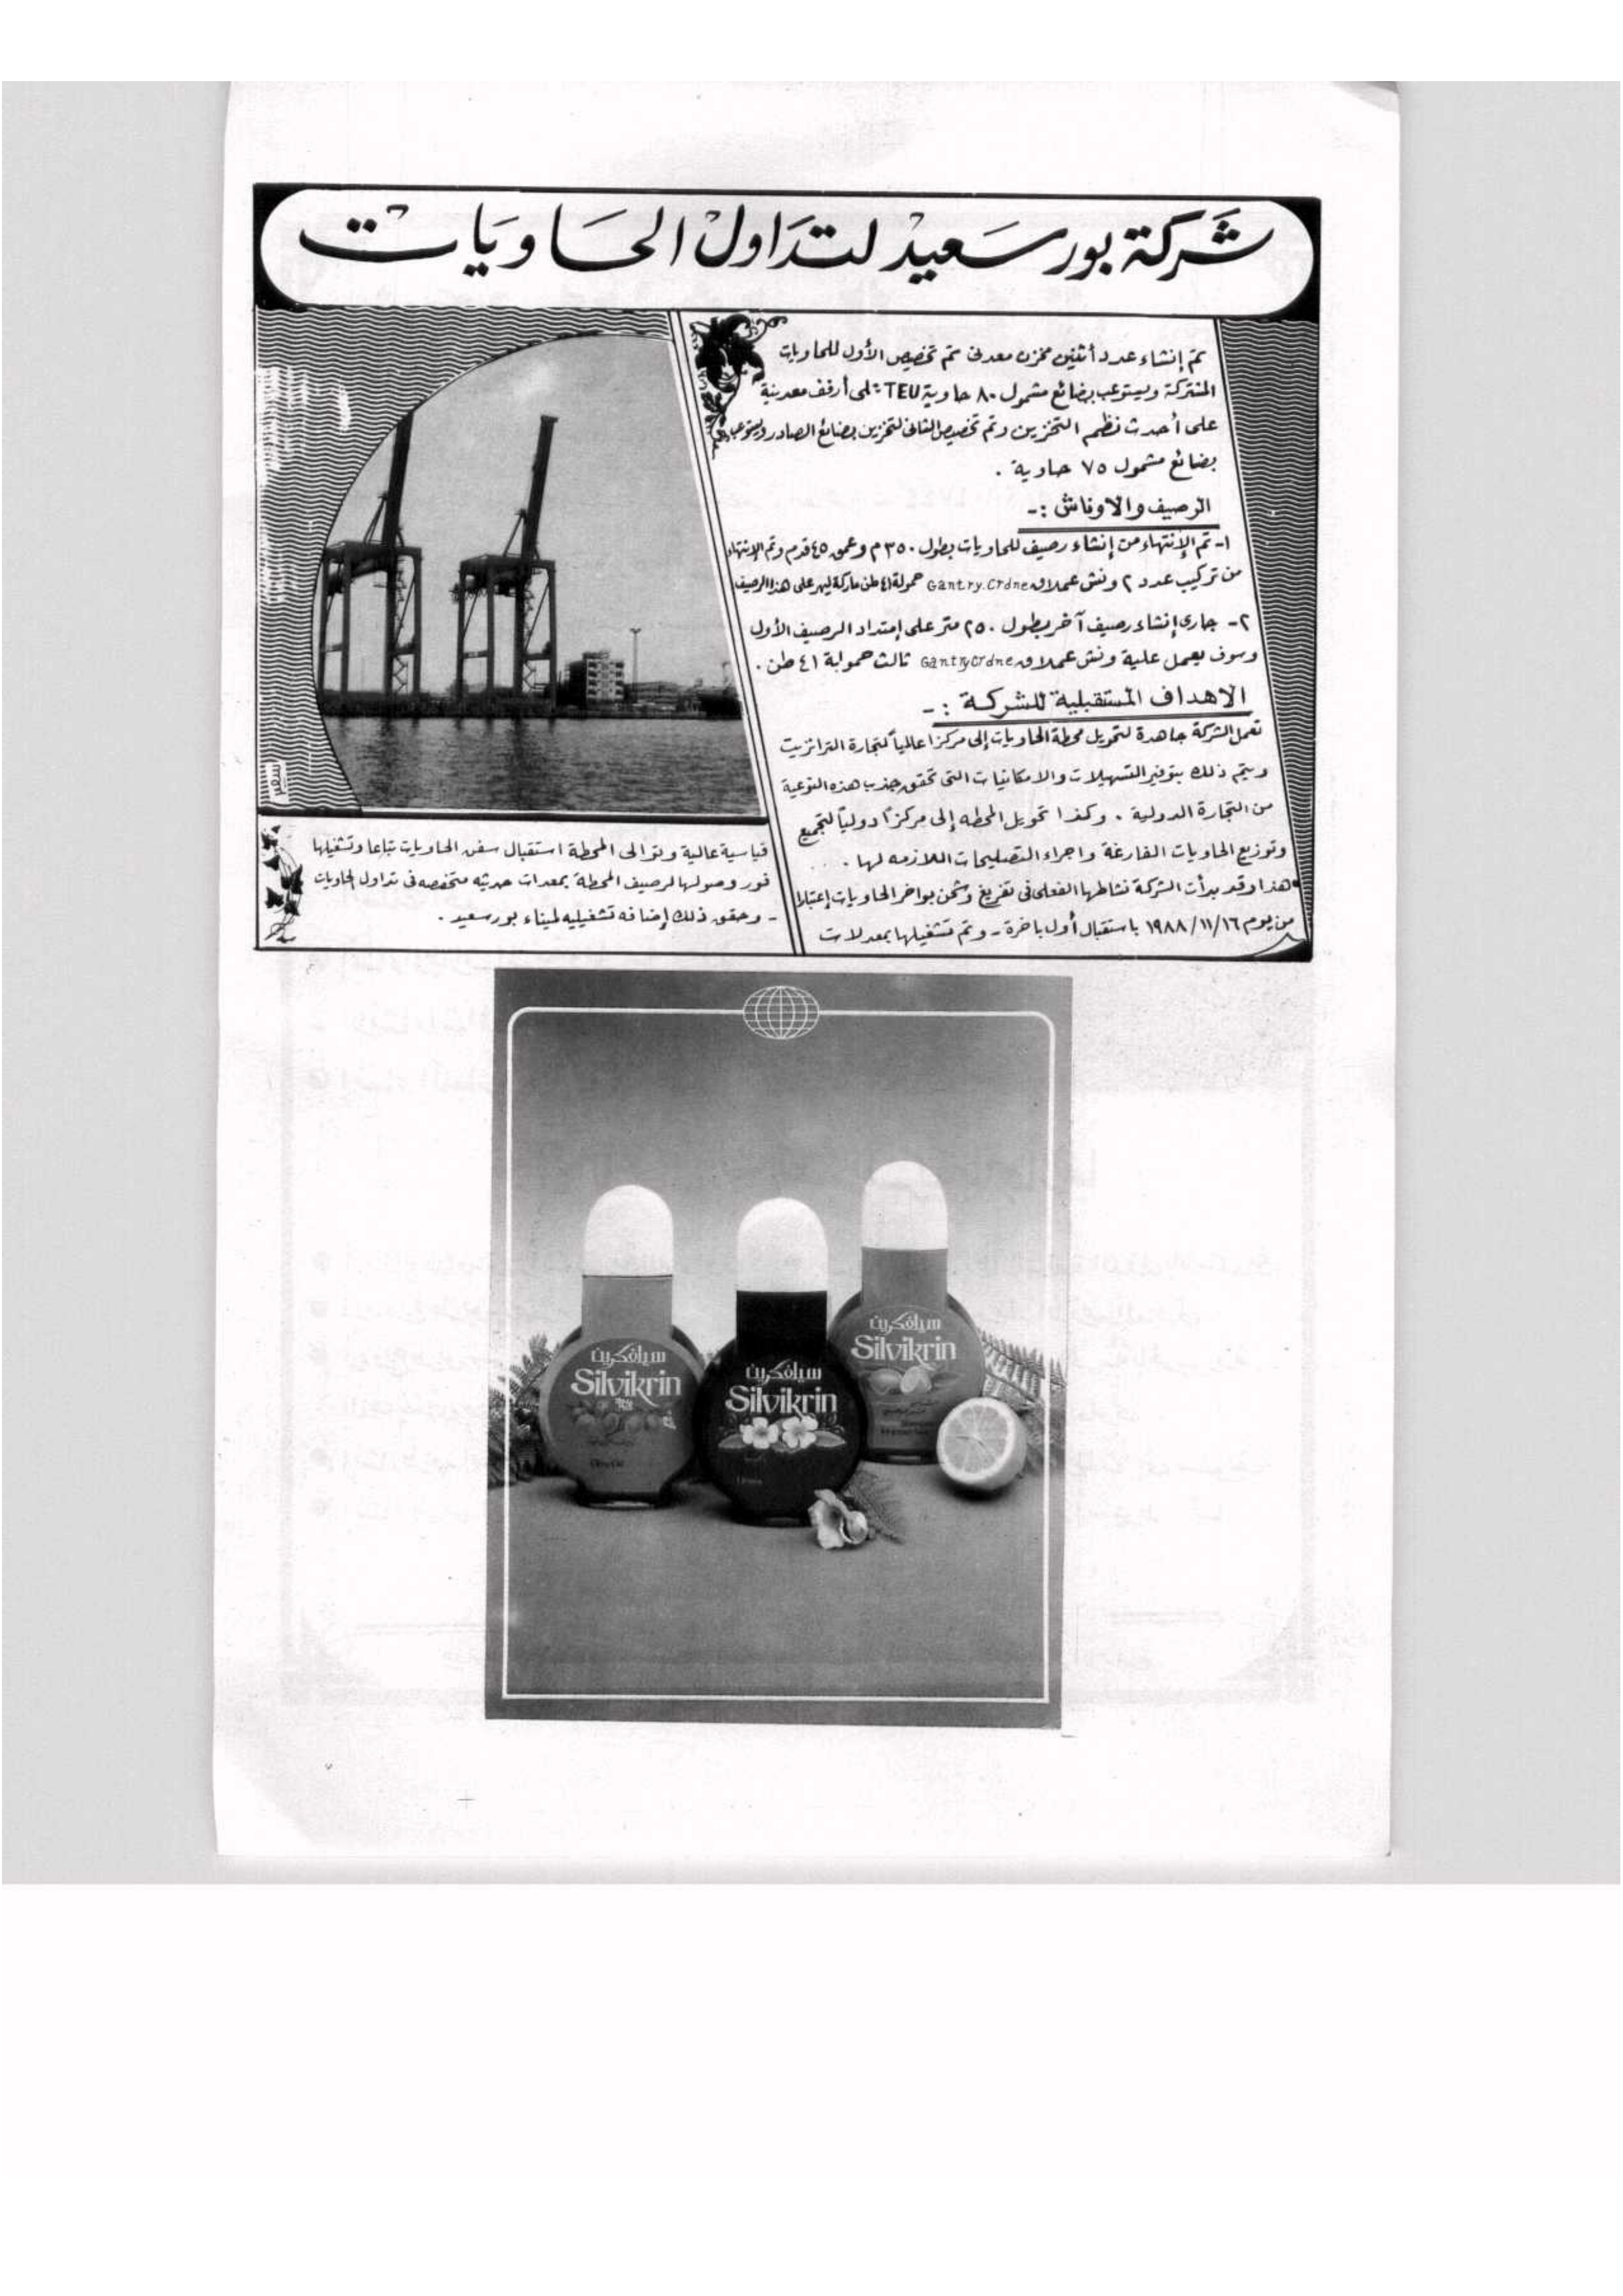 شركة بورسعيد لتداول الحاويات
تم إنشاء عدد أثنين مخزن معدنى تم تخصيص الأول للحاويات
المشتركة ويستوعب بضائع مشمول ٨٠ حاوية TEU على أرفف معدينة
على أحدث نظم التخزين وتم تخصيص الثانى لتخزين بضائع الصادر ويستوعب
بضائع مشمول ٧٥ حاوية .
الرصيف والاوناش :-
١- تم الإنتهاء من إنشاء رصيف للحاويات بطول ٣٥٠م وعمق ٤٥ قدم وتم الإنتهاء
من تركيب عدد ٢ ونش عملاق Gantry.Crdne حمولة ٤١ طن ماركة ليبر على هذا الرصيف
٢- جارى إنشاء رصيف آخر بطول ٢٥٠ متر على إمتداد الرصيف الأول
وسوف يعمل علية ونش عملاق GantryCrdne ثالث حمولة ٤١ طن .
الاهداف المستقبلية للشركة :-
تعمل الشركة جاهدة لتحويل محطة الحاويات إلى مركزا عالمياً لتجارة الترانزيت
ويتم ذلك بتوفير التسهيلات والامكانيات التى تحقق جذب هذه النوعية
من التجارة الدولية . وكذا تحويل المحطه إلى مركزاً دولياً لتجميع
وتوزيع الحاويات الفارغة واجراء التصليحات اللازمه لها .
هذا وقد بدأت الشركة نشاطها الفعلى فى تفريغ وشحن بواخر الحاويات إعتبارا
من يوم ١٩٨٨/١١/١٦ باستقبال أول باخرة - وتم تشغيلها بمعدلات
قياسية عالية وتوالى المحطة استقبال سفن الحاويات تباعا وتشغيلها
فور وصولها لرصيف المحطة بمعدات حديثه متخصصه فى تداول الحاويات
- وحقق ذلك إضافه تشغيليه لميناء بورسعيد .
سيلفكرين
Silvikrin
سيلفكرين
Silvikrin
سيلفكرين
Silvikrin